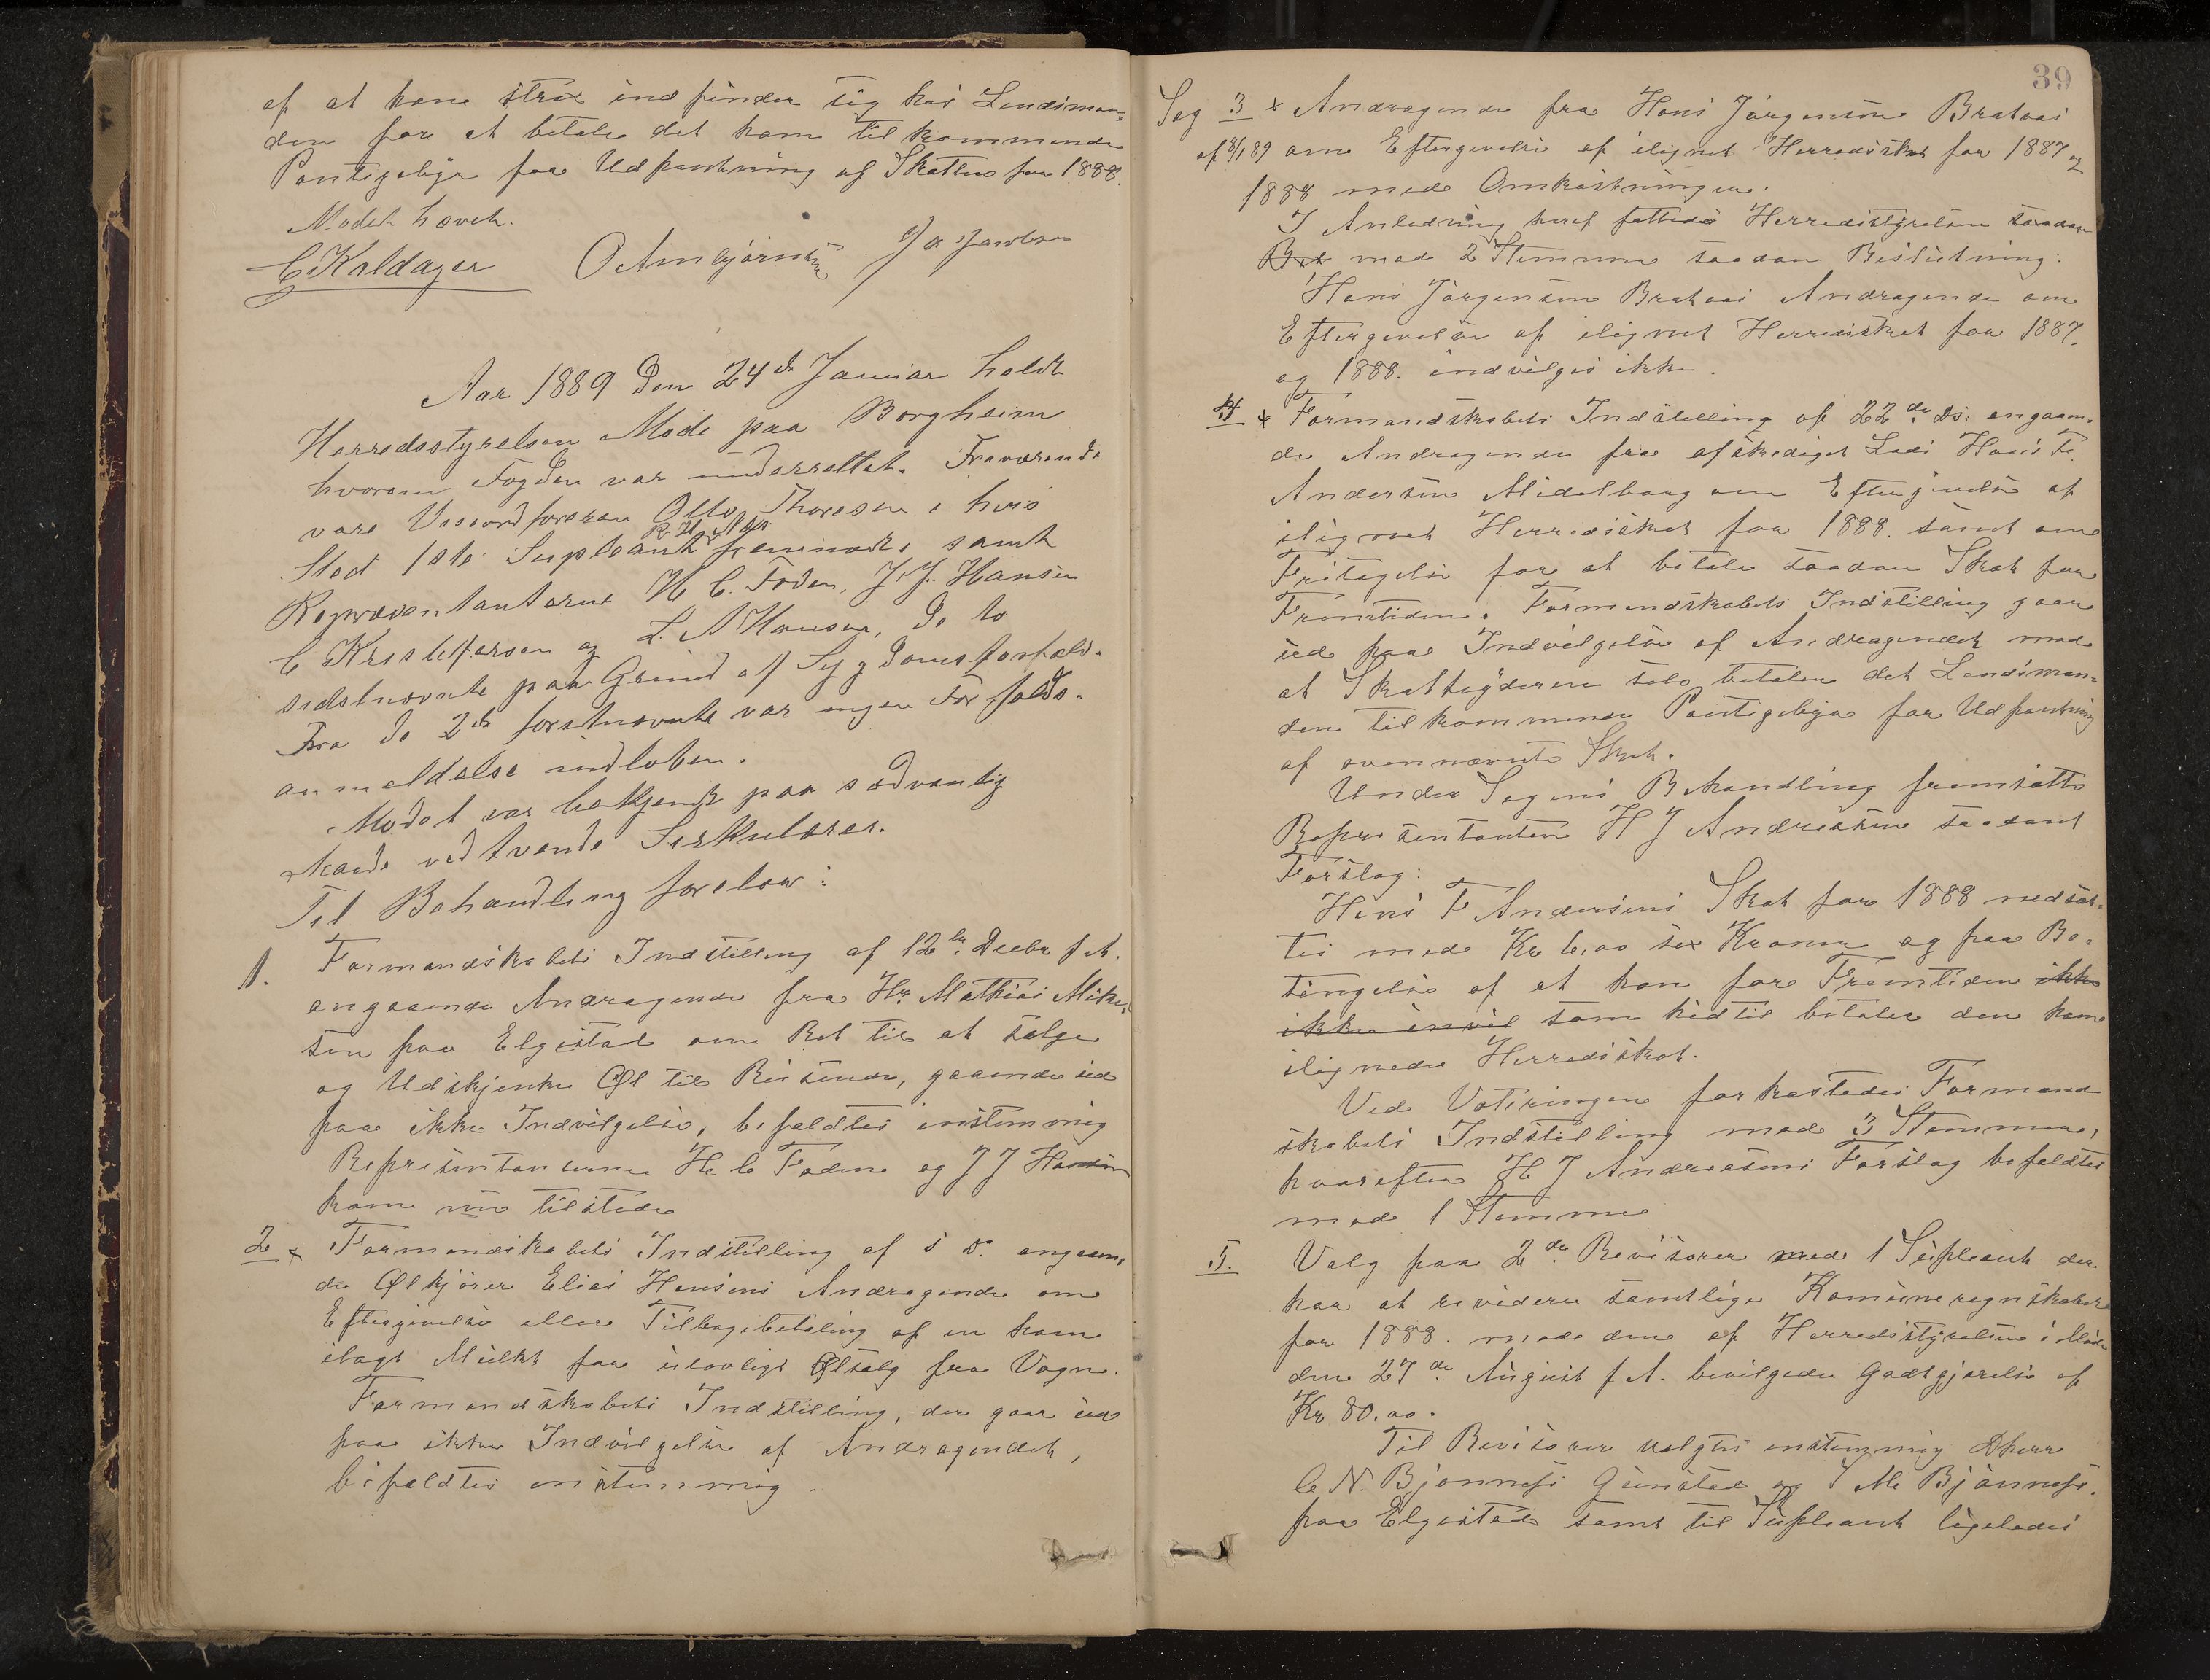 af at han strax indfinder sig hos Lendsman-
den for at betale det ham tilkommende
Pantegebyr for Udpantning af Skatten for 1888.
Mødet hævet.
C Kaldager O Ambjørnsen J A Jacobsen
Aar 1889 Den 24de Januar holdt
Herredsstyrelsen Møde paa Borgheim
hvorom Fogden var underrettet. Fraværende
vare Viseordføreren Otto Thoresen i hvis
Sted 1ste Supleant fremmødte, samt
Repræsentanterne H C. Foden, J. J. Hansen
C Kristoffersen og L. A Hansen, De to
sidstnævnte paa Grund af Sygdomsforfald.
Fra de 2de førstnævnte var ingen Forfalds-
anmeldelse indløben.
Mødet var bekjendt paa sædvanlig
Maade ved tvende Serkulærer.
Til Behandling forelaa:
1. Formandskabets Indstilling af 12te Decbr f. A.
angaaende Andragende fra Hr. Mathias Mikel-
sen paa Elgestad om Ret til at sælge
og Udskjenke Øl til Reisende, gaaende ud
paa ikke Indvilgelse, bifaldtes enstemmig
Represintanterne H. C Foden og J J Hansen
kom nu tilstede
2 x Formandskabets Indstilling af s D. angaaen-
de Ølkjører Elias Hansens Andragende om
Eftergivelse eller Tilbagebetaling af en ham
ilagt Mulkt for ulovligt Ølsalg fra Vogn.
Formandskabets Indstilling, der gaar ud
paa ikke Indvilgelse af Andragendet,
bifaldtes enstemmig.
39
Sag 3 x Andragende fra Hans Jørgensen Brataas
af 8/1 89 om Eftergivelse af ilignet Herredsskat for 1887 og
1888 med Omkostninger.
I Anledning heraf fattedes Herredsstyrelsen saadan
Bes mod 2 Stemmer saadan Beslutning:
Hans Jørgensen Brataas Andragende om
Eftergivelse af ilignet Herredsskat for 1887.
og 1888. indvilges ikke.
4 x Formandskabets Indstilling af 22de ds. angaaen-
de Andragende fra afskediget Lods Hans F.
Andersen Midelborg om Eftergivelse af
ilignet Herredsskat for 1888. samt om
Fritagelse for at betale saadan Skat for
Fremtiden. Formandskabets Indstilling gaar
ud paa Indvilgelse af Andragendet mod
at Skatteyderen selv betaler det Lendsman-
den tilkommende Pantegebyr for Udpantning
af ovennævnte Skat.
Under Sagens Behandling fremsatte
Represintanten H J Andreasen saadant
Forslag:
Hans F Andersens Skat for 1888 nedsæt-
tes med Kr 6,00 sex Kroner og paa Be-
tingelse af at han for Fremtiden ikke
ikke som hidtil betaler den ham
ilignede Herredsskat.
Ved Voteringen forkastedes Formand
skabets Indstilling mod 3 Stemmer,
hvorefter H J Andreasens Forslag bifaldtes
mod 1 Stemme
5. Valg paa 2de Revisorer med 1 Supleant der
har at revidere samtlige Kommuneregnskaber
for 1888. mod den af Herredsstyrelsen i Møde
den 27de August f A. bevilgede Godtgjørelse af
Kr 80.00.
Til Revisorer valgtes enstemmig Dherr
C N. Bjønness Gunstad og M. Bjønness.
paa Elgestad samt til Supleant ligeledes